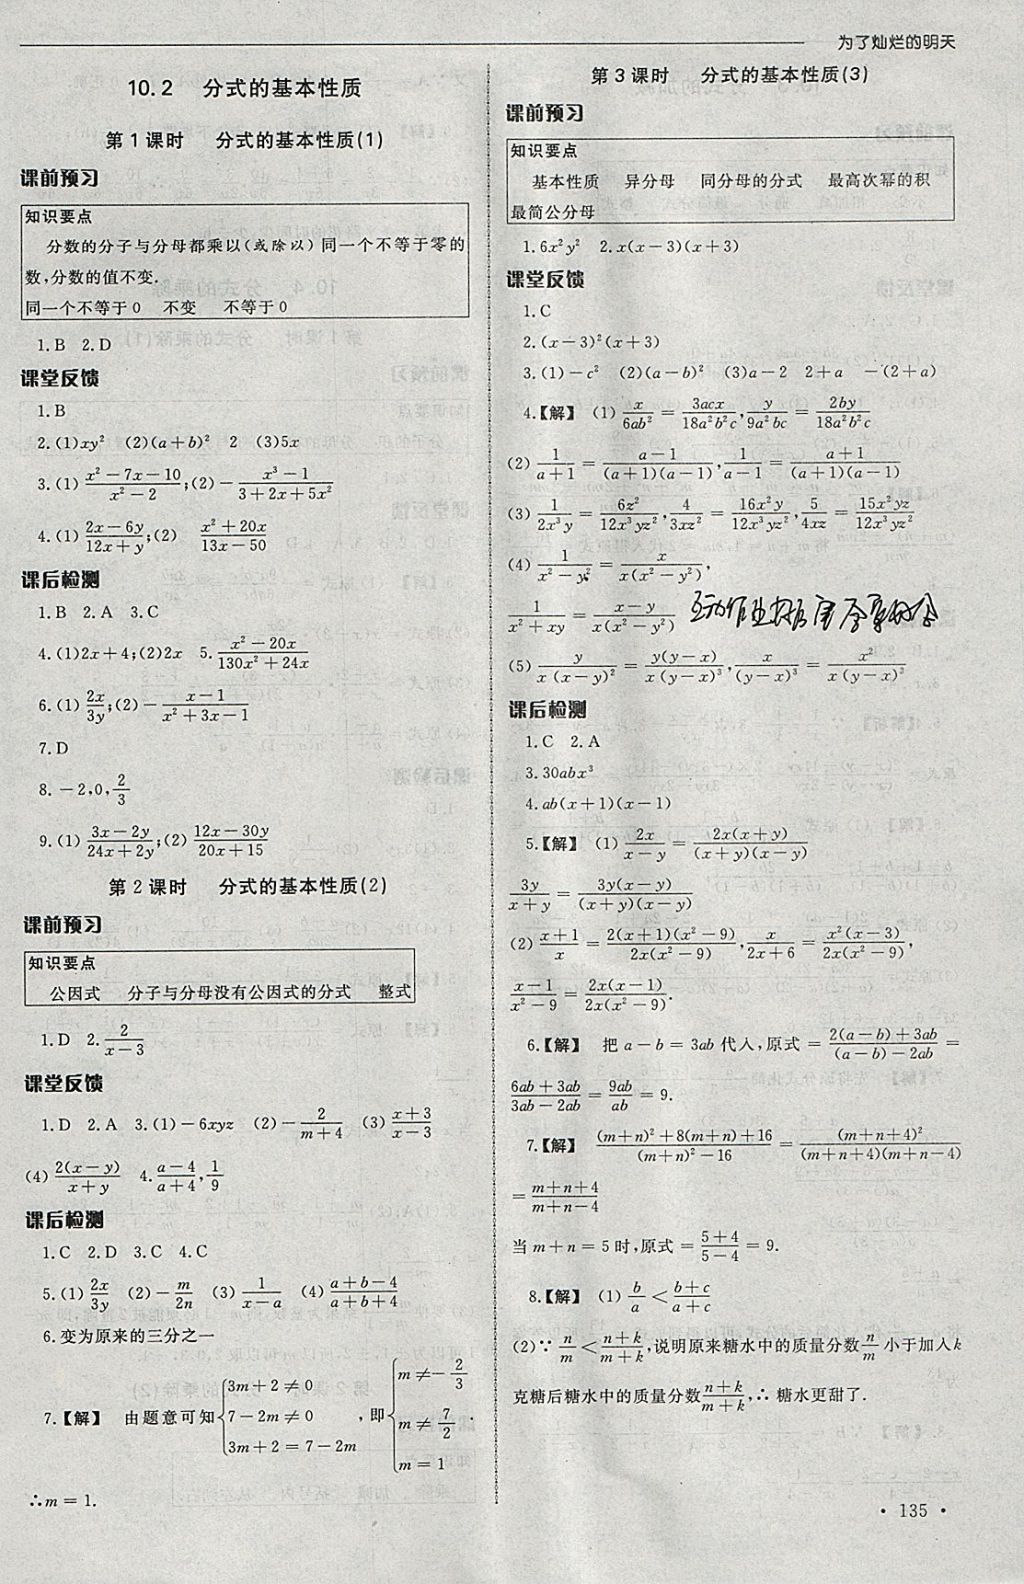 为了灿烂的明天
10.2 分式的基本性质
第1课时 分式的基本性质(1)
课前预习
知识要点
分数的分子与分母都乘以(或除以)同一个不等于零的
数,分数的值不变.
同一个不等于0 不变 不等于0
1.B 2.D
课堂反馈
1.B
2.(1)xy² (2)(a+b)² 2 (3)5x
3.(1) (x²-7x-10)/(x²-2);(2)- (x³-1)/(3+2x+5x²)
4.(1) (2x-6y)/(12x+y);(2) (x²+20x)/(13x-50)
课后检测
1.B 2.A 3.C
4.(1)2x+4;(2)2x 5. (x²-20x)/(130x²+24x)
6.(1) 2x/3y;(2)- (x-1)/(x²+3x-1)
7.D
8.-2,0,2/3
9.(1) (3x-2y)/(24x+2y);(2) (12x-30y)/(20x+15)
第2课时 分式的基本性质(2)
课前预习
知识要点
公因式 分子与分母没有公因式的分式 整式
1.D 2. 2/(x-3)
课堂反馈
1.D 2.A 3.(1)-6xyz (2)- 2/(m+4) (3) (x+3)/(x-3)
(4) 2(x-y)/(x+y) 4. (a-4)/(a+4),1/9
课后检测
1.C 2.D 3.C 4.C
5.(1) 2x/3y (2)- m/2n (3) 1/(x-a) (4) (a+b-4)/(a+b+4)
6.变为原来的三分之一
7.【解】 由题意可知{3m+2≠0 7-2m≠0 3m+2=7-2m,即{m≠-2/3 m≠7/2 m=1.
∴m=1.
第3课时 分式的基本性质(3)
课前预习
知识要点
基本性质 异分母 同分母的分式 最高次幂的积
最简公分母
1.6x²y² 2.x(x-3)(x+3)
课堂反馈
1.C
2.(x-3)²(x+3)
3.(1)-c² (2)(a-b)² (3)a-2 2+a -(2+a)
4.【解】 (1) x/6ab² = 3acx/18a²b²c, y/9a²bc = 2by/18a²b²c
(2) 1/(a+1) = (a-1)/((a+1)(a-1)), 1/(a-1) = (a+1)/((a+1)(a-1))
(3) 1/2x³y = 6z²/12x³yz², 4/3xz² = 16x²y/12x³yz², 5/4xz = 15x²yz/12x³yz²
(4) 1/(x²-y²) = x/(x(x²-y²)),
1/(x²+xy) = (x-y)/(x(x²-y²))
(5) y/(x(x-y)²) = y(y-x)/(x(y-x)³), x/(y-x)³ = x²/(x(y-x)³)
课后检测
1.C 2.A
3.30abx³
4.ab(x+1)(x-1)
5.【解】 (1) 2x/(x-y) = 2x(x+y)/((x+y)(x-y))
3y/(x+y) = 3y(x-y)/((x+y)(x-y))
(2) (x+1)/x = 2(x+1)(x²-9)/(2x(x²-9)), x/(2x+6) = x²(x-3)/(2x(x²-9)),
(x-1)/(x²-9) = 2x(x-1)/(2x(x²-9)).
6.【解】 把a-b=3ab代入,原式= (2(a-b)+3ab)/((a-b)-2ab) =
(6ab+3ab)/(3ab-2ab) = 9ab/ab = 9.
7.【解】 ((m+n)²+8(m+n)+16)/((m+n)²-16) = (m+n+4)²/((m+n+4)(m+n-4))
= (m+n+4)/(m+n-4)
当m+n=5时,原式= (5+4)/(5-4) = 9.
8.【解】 (1) b/a < (b+c)/(a+c)
(2)∵ n/m < (n+k)/(m+k),说明原来糖水中的质量分数 n/m 小于加人k
克糖后糖水中的质量分数 (n+k)/(m+k),∴糖水更甜了.
• 135 •